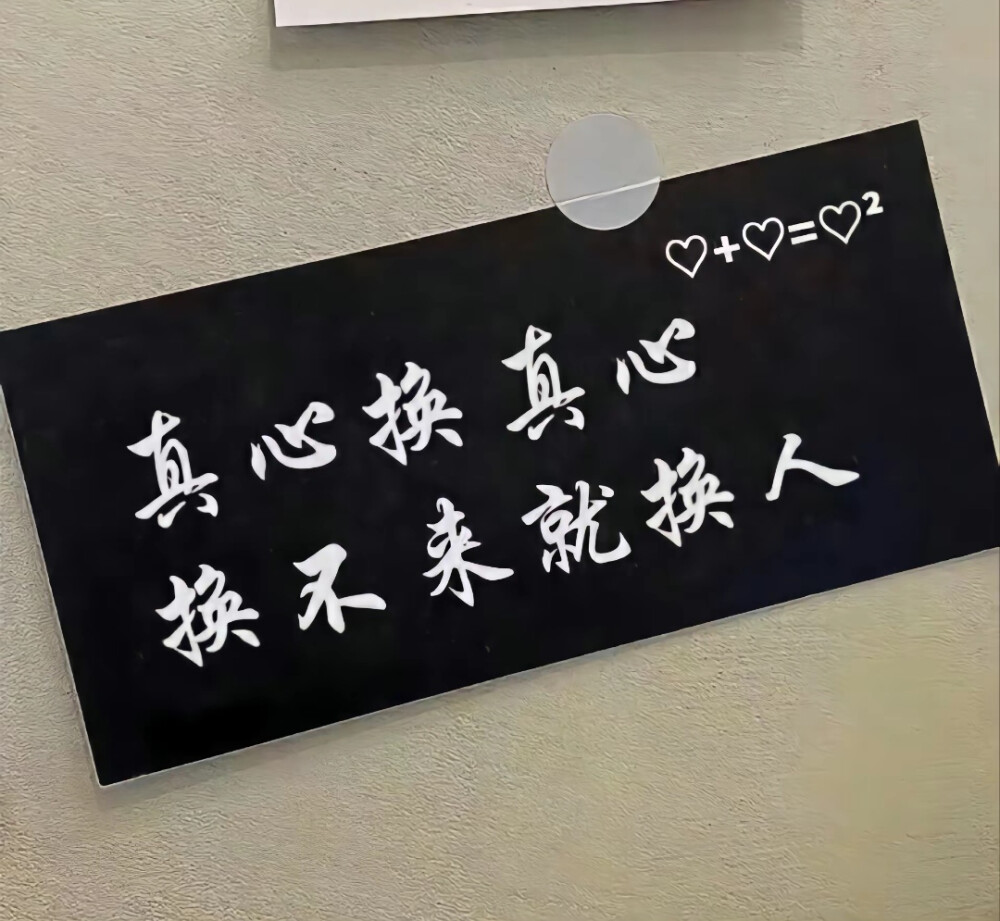 ♡+♡=♡²
真心换真心
换不来就换人